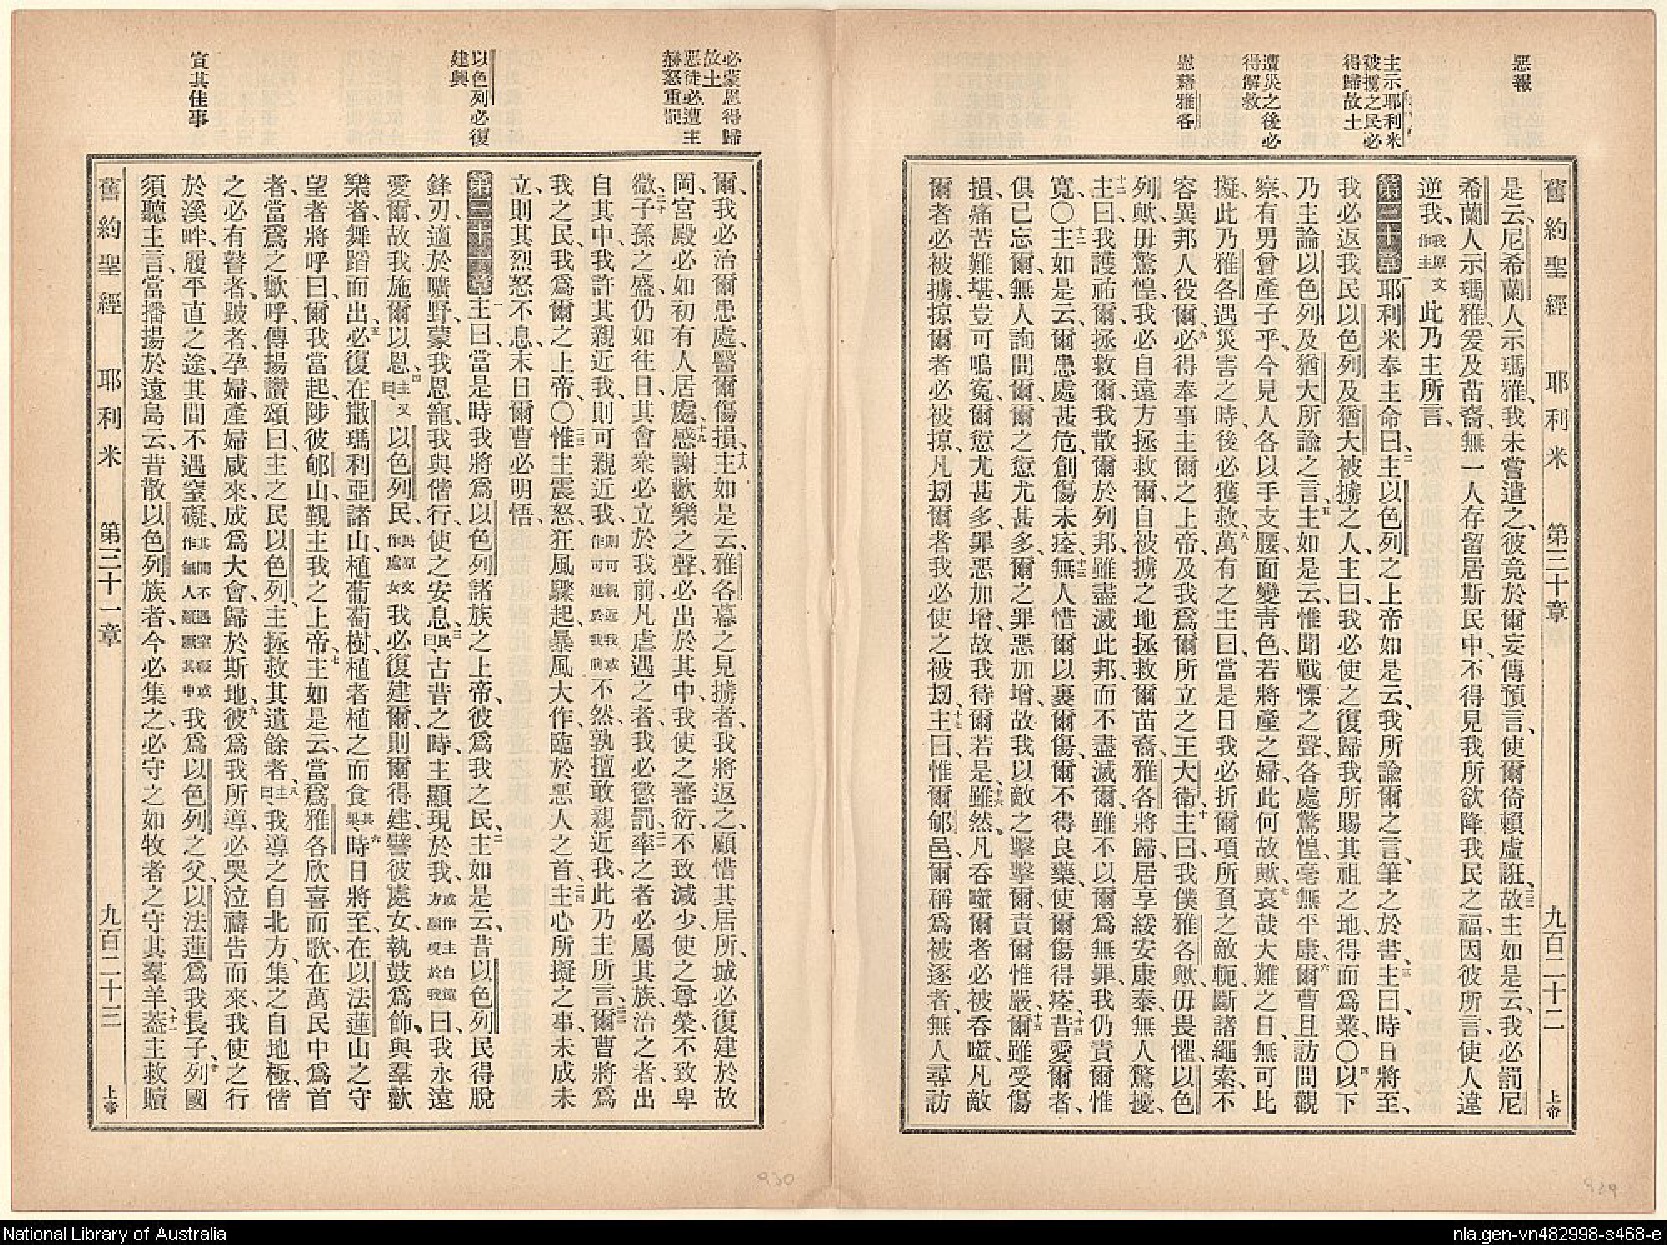 惡報
主示耶利米
被擄之民必
得歸故土
遭災之後必
得解救
慰藉雅各
舊約聖經 耶利米 第三十章 九百二十二 上帝
是云尼希蘭人示瑪雅我未嘗遣之彼竟於爾妄傳預言使爾倚賴虛誑故主如是云我必罰尼
希蘭人示瑪雅爰及苗裔無一人存留居斯民中不得見我所欲降我民之福因彼所言使人違
逆我我原文作主此乃主所言
第三十章一耶利米奉主命曰二主以色列之上帝如是云我所諭爾之言筆之於書三主曰時日將至
我必返我民以色列及猶大被擄之人主曰我必使之復歸我所賜其祖之地得而為業○四以下
乃主論以色列及猶大所諭之言五主如是云惟聞戰慄之聲各處驚惶毫無平康六爾曹且訪問觀
察有男曾產子乎今見人各以手支腰面變青色若將產之婦此何故歟七哀哉大難之日無可比
擬此乃雅各遇災害之時後必獲救八萬有之主曰當是日我必折爾項所負之敵軛斷諸繩索不
容異邦人役爾九必得奉事主爾之上帝及我為爾所立之王大衛十主曰我僕雅各歟毋畏懼以色
列歟毋驚惶我必自遠方拯救爾自被擄之地拯救爾苗裔雅各將歸居享綏安康泰無人驚擾
十一主曰我護祐爾拯救爾我散爾於列邦雖盡滅此邦而不盡滅爾雖不以爾為無罪我仍責爾惟
寬○十二主如是云爾患處甚危創傷未痊十三無人惜爾以裹爾傷爾不得良藥使爾傷得痊十四昔愛爾者
俱已忘爾無人詢問爾爾之愆尤甚多爾之罪惡加增故我以敵之擊擊爾責爾惟嚴十五爾雖受傷
損痛苦難堪豈可鳴冤爾愆尤甚多罪惡加增故我待爾若是十六雖然凡吞噬爾者必被吞噬凡敵
爾者必被擄掠爾者必被掠凡刧爾者我必使之被刧十七主曰惟爾郇邑爾稱為被逐者無人尋訪
必蒙恩得歸
故土
惡徒必遭主
震怒重罰
以色列必復
建興
宣其佳事
爾我必治爾患處醫爾傷損十八主如是云雅各幕之見擄者我將返之顧惜其居所城必復建於故
岡宮殿必如初有人居處十九感謝歡樂之聲必出於其中我使之蕃衍不致減少使之尊榮不致卑
微二十子孫之盛仍如往日其會衆必立於我前凡虐遇之者我必懲罰二一牽之者必屬其族治之者出
自其中我許其親近我則可親近我則可親近我或作可進於我前不然孰擅敢親近我此乃主所言二二爾曹將為
我之民我為爾之上帝○二三惟主震怒狂風驟起暴風大作臨於惡人之首二四主心所擬之事未成未
立則其烈怒不息末日爾曹必明悟
第三十一章一主曰當是時我將為以色列諸族之上帝彼為我之民二主如是云昔以色列民得脫
鋒刃適於曠野蒙我恩寵我與偕行使之安息三民曰古昔之時主顯現於我或作主自遠方顯現於我曰我永遠
愛爾故我施爾以恩四主又曰以色列民民原文作處女我必復建爾則爾得建譬彼處女執鼓為飾與羣歡
樂者舞蹈而出五必復在撒瑪利亞諸山植葡萄樹植者植之而食其果六時日將至在以法蓮山之守
望者將呼曰爾我當起陟彼郇山覲主我之上帝七主如是云當為雅各欣喜而歌在萬民中為首
者當為之歡呼傳揚讚頌曰主之民以色列主拯救其遺餘者八主曰我導之自北方集之自地極偕
之必有瞽者跛者孕婦產婦咸來成為大會歸於斯地九彼為我所導必哭泣禱告而來我使之行
於溪畔履平直之途其間不遇窒礙其間不遇窒礙或作無人顛蹶其中我為以色列之父以法蓮為我長子十列國
須聽主言當播揚於遠島云昔散以色列族者今必集之必守之如牧者之守其羣羊十一蓋主救贖
舊約聖經 耶利米 第三十一章 九百二十三 上帝
930
929
National Library of Australia
nla.gen-vn482998-s468-e